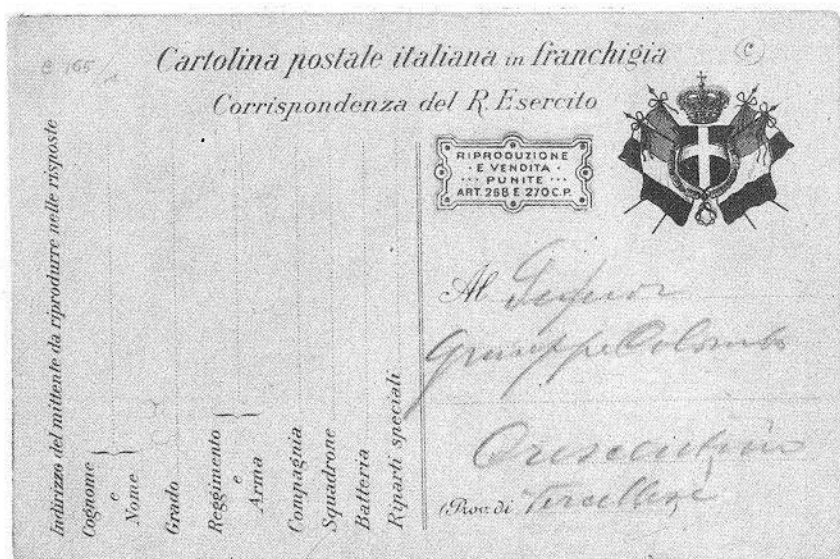 C 165/1
C
Cartolina postale italiana in franchigia
Corrispondenza del R. Esercito
RIPRODUZIONE
E VENDITA
PUNITE
ART. 268 E 270 C.P.
Indirizzo del mittente da riprodurre nelle risposte
Cognome
e
Nome
Grado
Reggimento
e
Arma
Compagnia
Squadrone
Batteria
Riparti speciali
Al
Giuseppe Colombo
(Prov. di